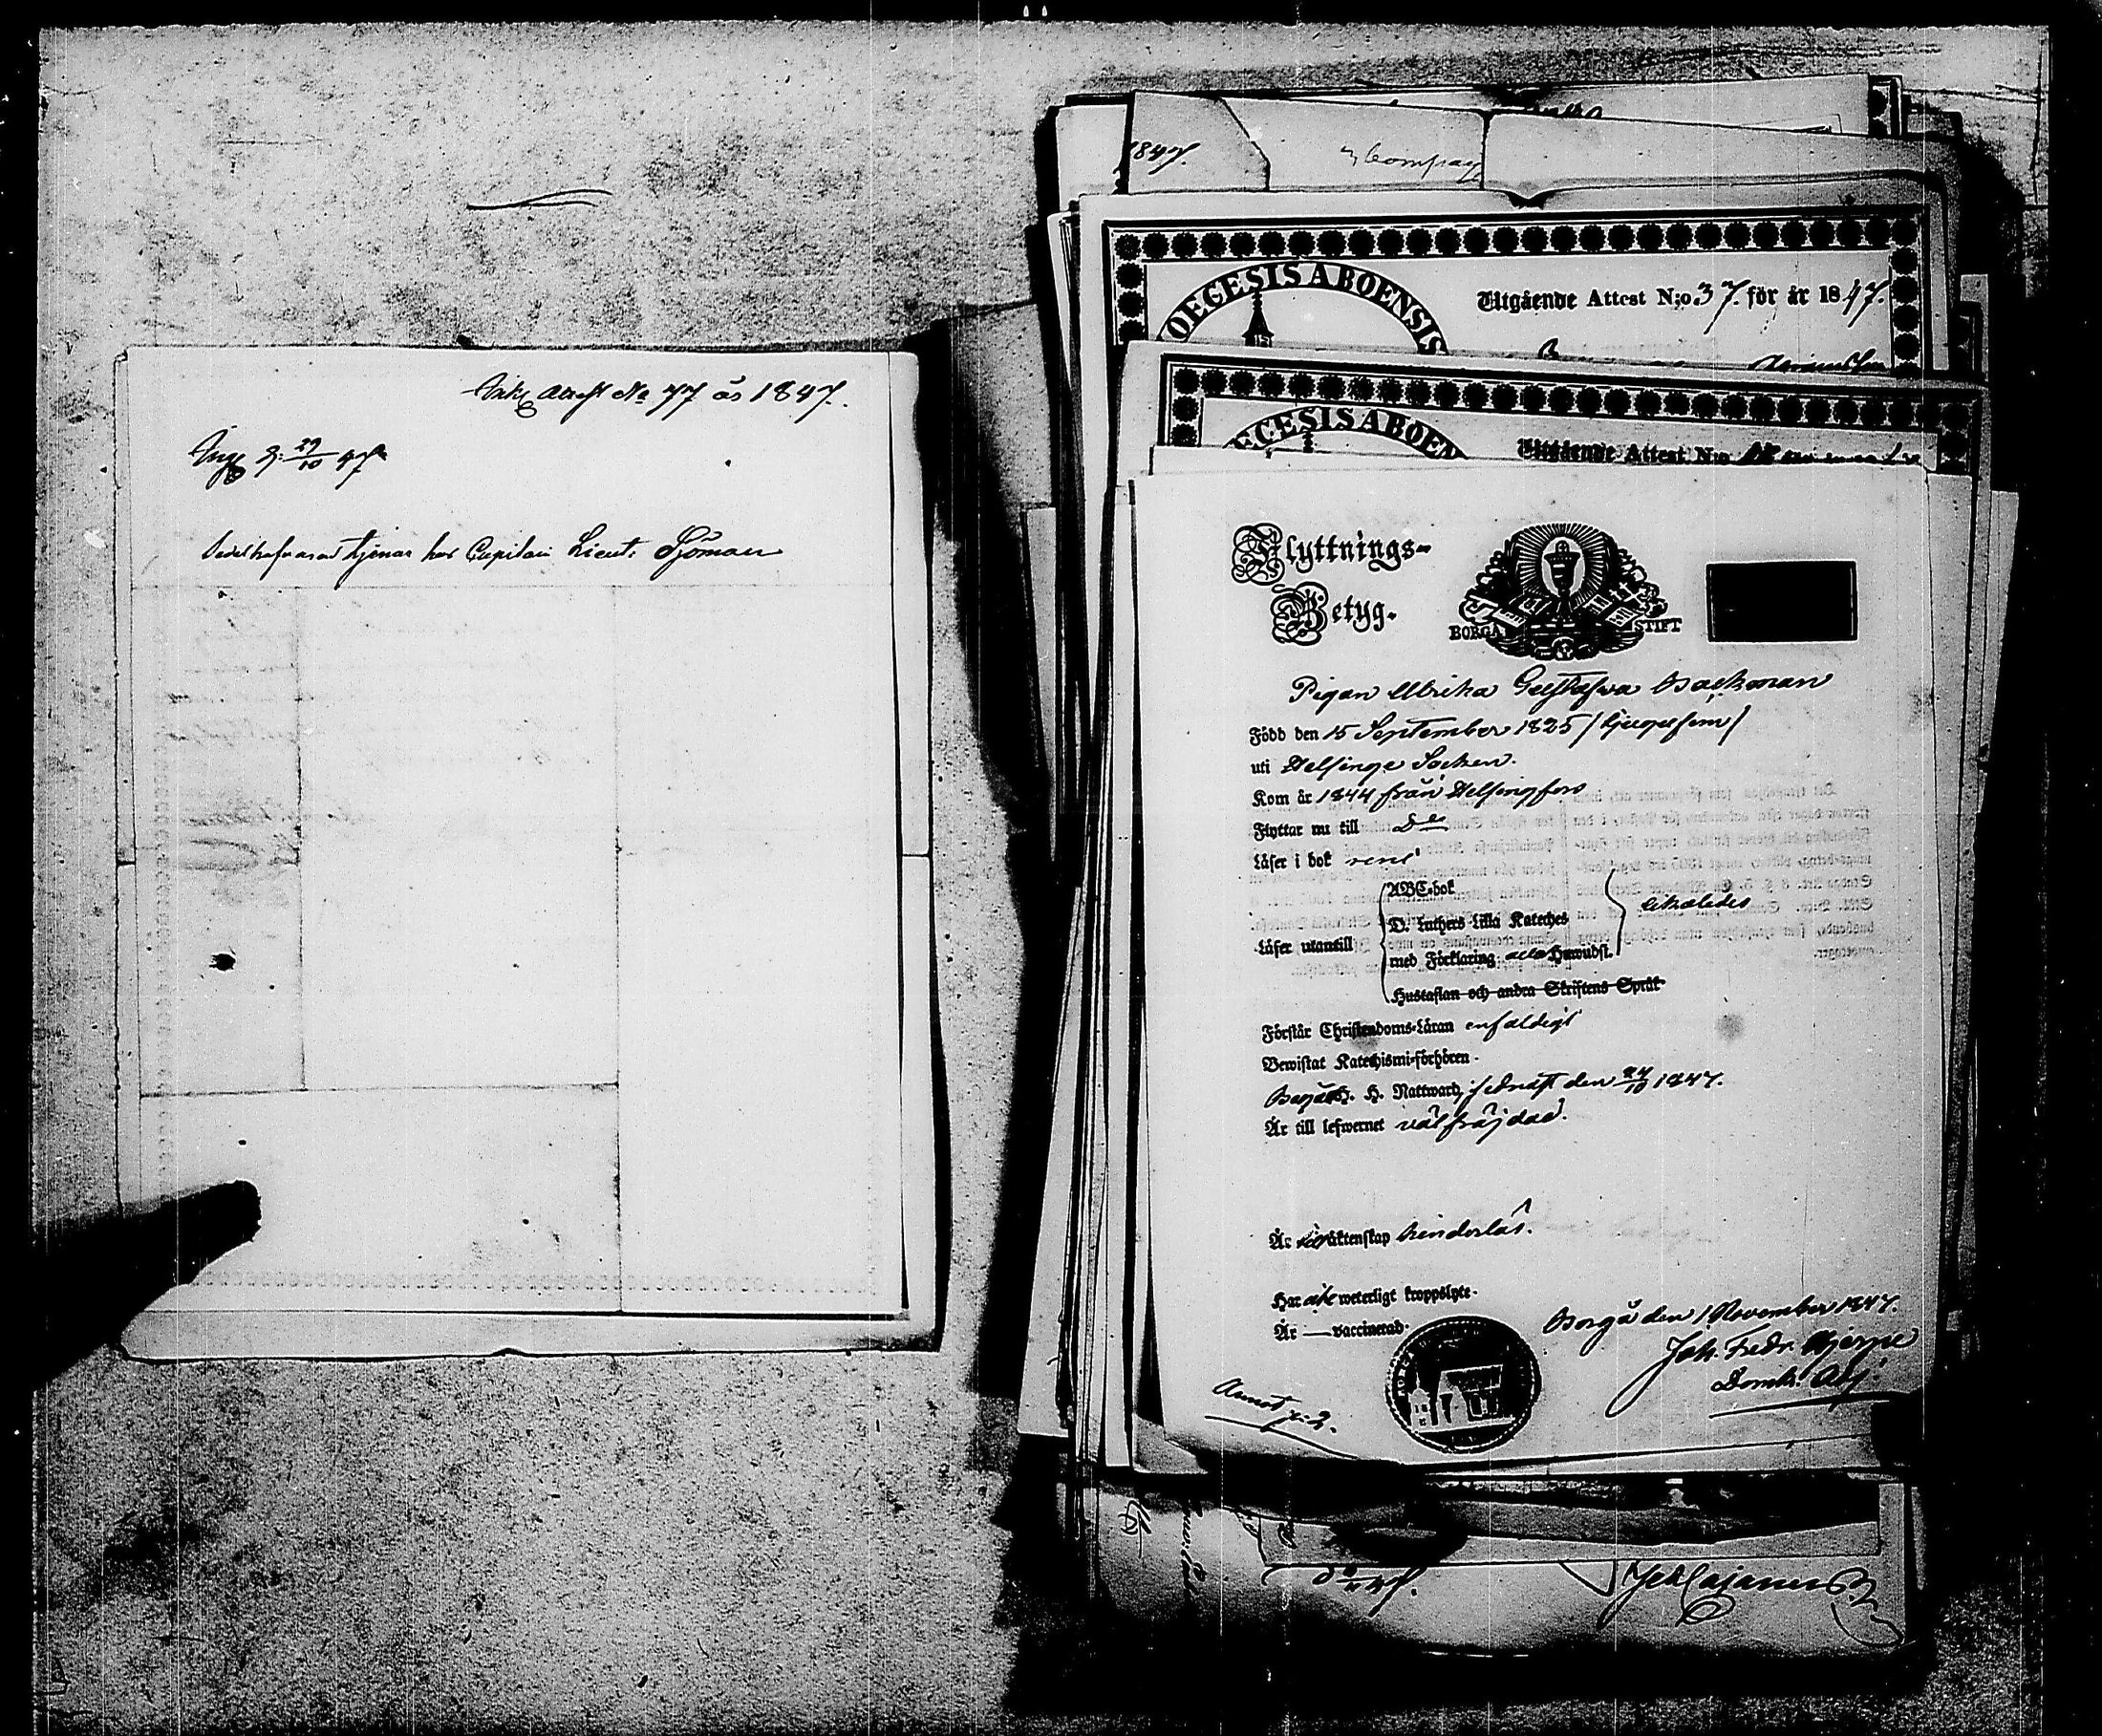 Attest No 77 år 1847.
29/10 47
Sedelhafvaren tjenar hos Capitain Lieut: Sjöman
1847.
Compag
DIOECESIS ABOENSIS
Utgående Attest N:o 37. för år 1847.
ECESIS ABOEN
Utgående Attest N:o
Flyttnings-
Betyg.
BORGÅ STIFT
Pigan Ulrika Gustafva Backman
Född den 15 September 1825
uti Helsinge Socken.
Kom år 1844 från Helsingfors
Flyttar nu till Do
Läser i bok rent
Läser utantill
ABC-bok
D. Luthers Lilla Kateches
med Förklaring alla Huwudst.
likaledes
Hustaflan och andra Skriftens Språk
Förstår Christendoms-Läran enfaldigt
Bewistat Katechismi-förhören.
Begått H. H. Nattward, sednast den 24/10 1847.
Är till lefwernet välfräjdad.
Är till äktenskap hinderlös.
Har icke weterligt kroppslyte.
Är — vaccinerad.
Borgå den 1 November 1847.
Joh. Fredr. Hjerpe
Domk. Adj.
Annot p. 2.